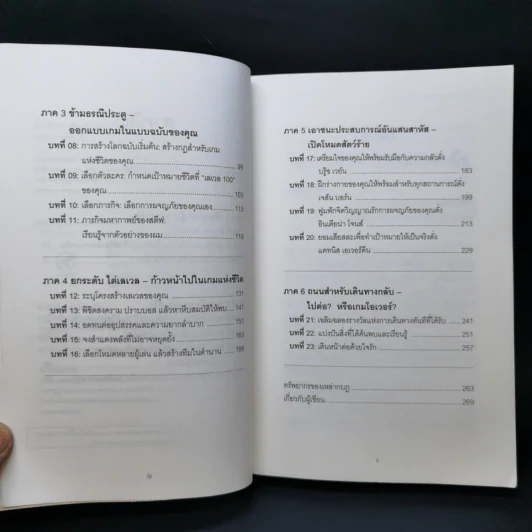 ภาค 3 ข้ามธรณีประตู –
ออกแบบเกมในแบบฉบับของคุณ
บทที่ 08: การสร้างโลกฉบับเริ่มต้น: สร้างกฎสำหรับเกม
แห่งชีวิตของคุณ 99
บทที่ 09: เลือกตัวละคร: กำหนดเป้าหมายชีวิตที่ "เลเวล 100"
ของคุณ 103
บทที่ 10: เลือกภารกิจ: เลือกการผจญภัยของคุณเอง 111
บทที่ 11: ภารกิจมหากาพย์ของสตีฟ:
เรียนรู้จากตัวอย่างของผม 119
ภาค 4 ยกระดับ ไต่เลเวล – ก้าวหน้าไปในเกมแห่งชีวิต
บทที่ 12: ระบุโครงสร้างเลเวลของคุณ 131
บทที่ 13: พิชิตสงคราม ปราบบอส แล้วหาหีบสมบัติให้พบ 141
บทที่ 14: อดทนต่ออุปสรรคและความยากลำบาก 151
บทที่ 15: จงสำแดงพลังที่ไม่อาจหยุดยั้ง 159
บทที่ 16: เลือกโหมดหลายผู้เล่น แล้วสร้างทีมในตำนาน 169
iv
ภาค 5 เอาชนะประสบการณ์อันแสนสาหัส –
เปิดโหมดสัตว์ร้าย
บทที่ 17: เตรียมใจของคุณให้พร้อมรับมือกับความกลัวดั่ง
บรูซ เวย์น 183
บทที่ 18: ฝึกร่างกายของคุณให้พร้อมสำหรับทุกสถานการณ์ดั่ง
เจสัน บอร์น 199
บทที่ 19: ฟูมฟักจิตวิญญาณรักการผจญภัยของคุณดั่ง
อินเดียน่า โจนส์ 213
บทที่ 20: ยอมเสียสละเพื่อทำเป้าหมายให้เป็นจริงดั่ง
แคทนิส เอเวอร์ดีน 229
ภาค 6 ถนนสำหรับเดินทางกลับ –
ไปต่อ? หรือเกมโอเวอร์?
บทที่ 21: เฉลิมฉลองรางวัลแห่งการเดินทางทันทีที่ได้รับ 241
บทที่ 22: แบ่งปันสิ่งที่ได้ค้นพบและเรียนรู้ 251
บทที่ 23: เดินหน้าต่อด้วยใจรัก 257
ทรัพยากรของเหล่ากบฏ 263
เกี่ยวกับผู้เขียน 269
v